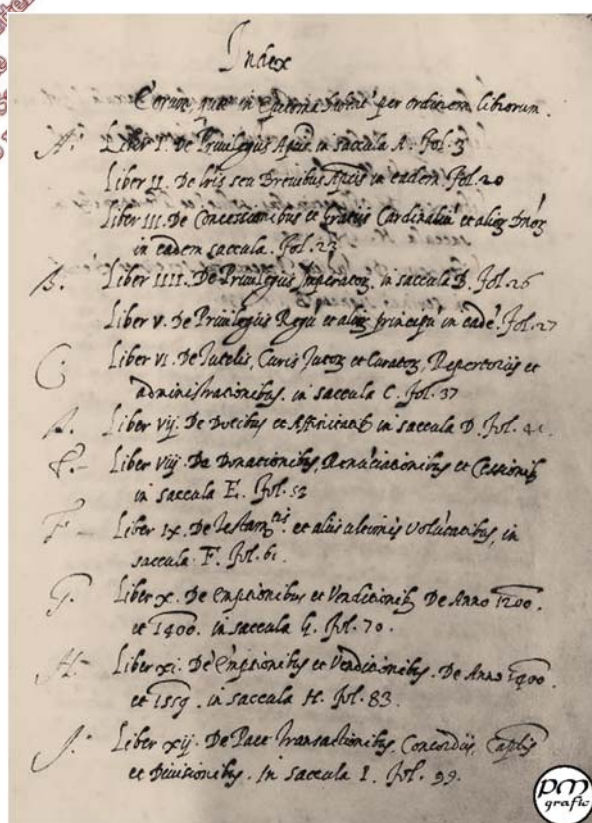 Index
Eorum, quae in per ordinem librorum.
A. Liber I. De Privilegiis Aplis in saccula A. fol. 3
Liber II. De lris seu Brevibus Aplicis in eadem. fol. 20
Liber III. De Concessionibus et Gratiis Cardinaliũ et alioꝝ
in eadem saccula. fol. 23
B. Liber IIII. De Privilegiis Imperatoꝝ. in saccula B. fol. 26
Liber V. De Privilegiis Regũ et alioꝝ principũ in eadẽ. fol. 27
C. Liber VI. De Tutelis, Curis Tutoꝝ et Curatoꝝ, Repertoriis et
administrationibus. in saccula C. fol. 37
Liber vij. De Dotibus et in saccula D. fol.
E. Liber viij. De Donationibus, Renũciationibus et Cessionib
in saccula E. fol. 52
F Liber ix. De Testam.tis et aliis ultimis volũtatibus, in
saccula. F. fol. 61
G. Liber x. De emptionibus et Venditionib De Anno 1200.
et 1400. in saccula G. fol. 70.
H. Liber xi. De emptionibus et Venditionibus. De Anno 1400.
et 1559. in saccula H. fol. 83.
I. Liber xij. De Pace Transactionibus, Concordiis, Caplis
et Divisionibus. In saccula I. fol. 99.
pm
grafic